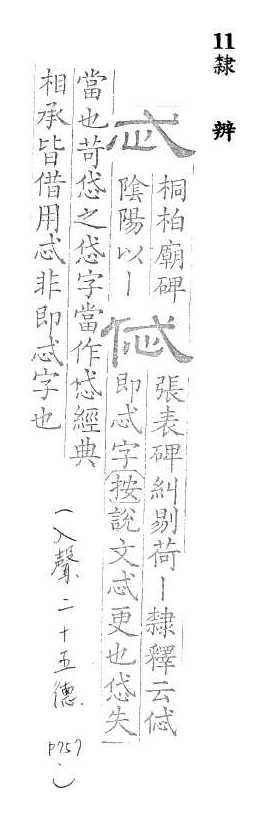 11隸辨
忒
桐柏廟碑
陰陽以丨
張表碑糾剔荷丨隸釋云
即忒字按說文忒更也𢘍失
當也苛𢘍之𢘍字當作𢘍經典
相承皆借用忒非即忒字也
(入聲二十五德 P757.)